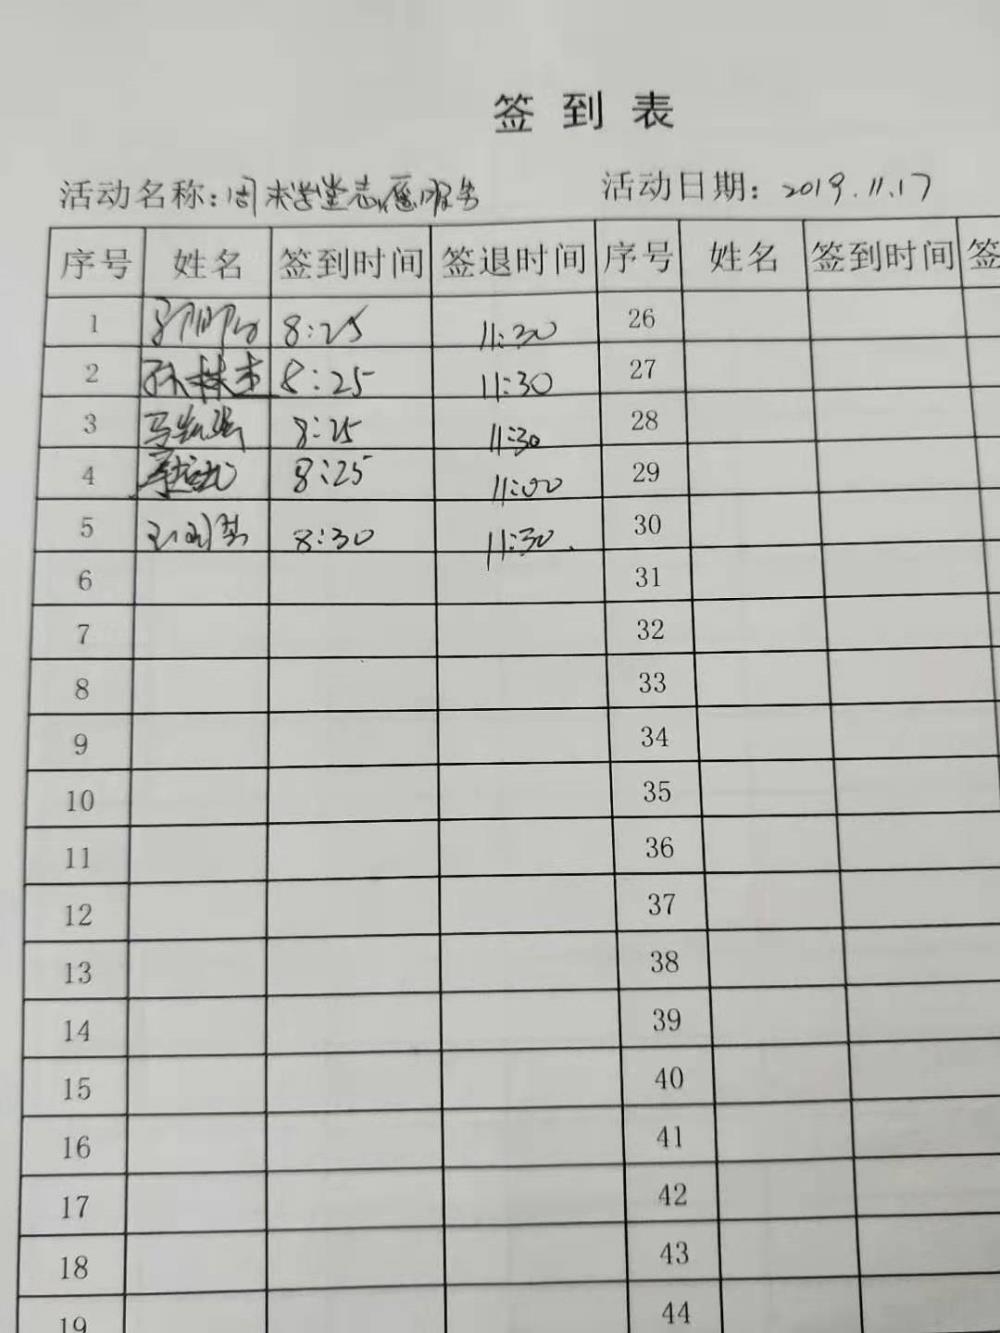 签到表
活动名称:周末学堂志愿服务 活动日期:2019.11.17
序号 姓名 签到时间 签退时间 序号 姓名 签到时间 签
1 8:25 11:30 26
2 孙林杰 8:25 11:30 27
3 8:25 11:30 28
4 8:25 11:00 29
5 8:30 11:30. 30
6 31
7 32
8 33
9 34
10 35
11 36
12 37
13 38
14 39
15 40
16 41
17 42
18 43
19 44